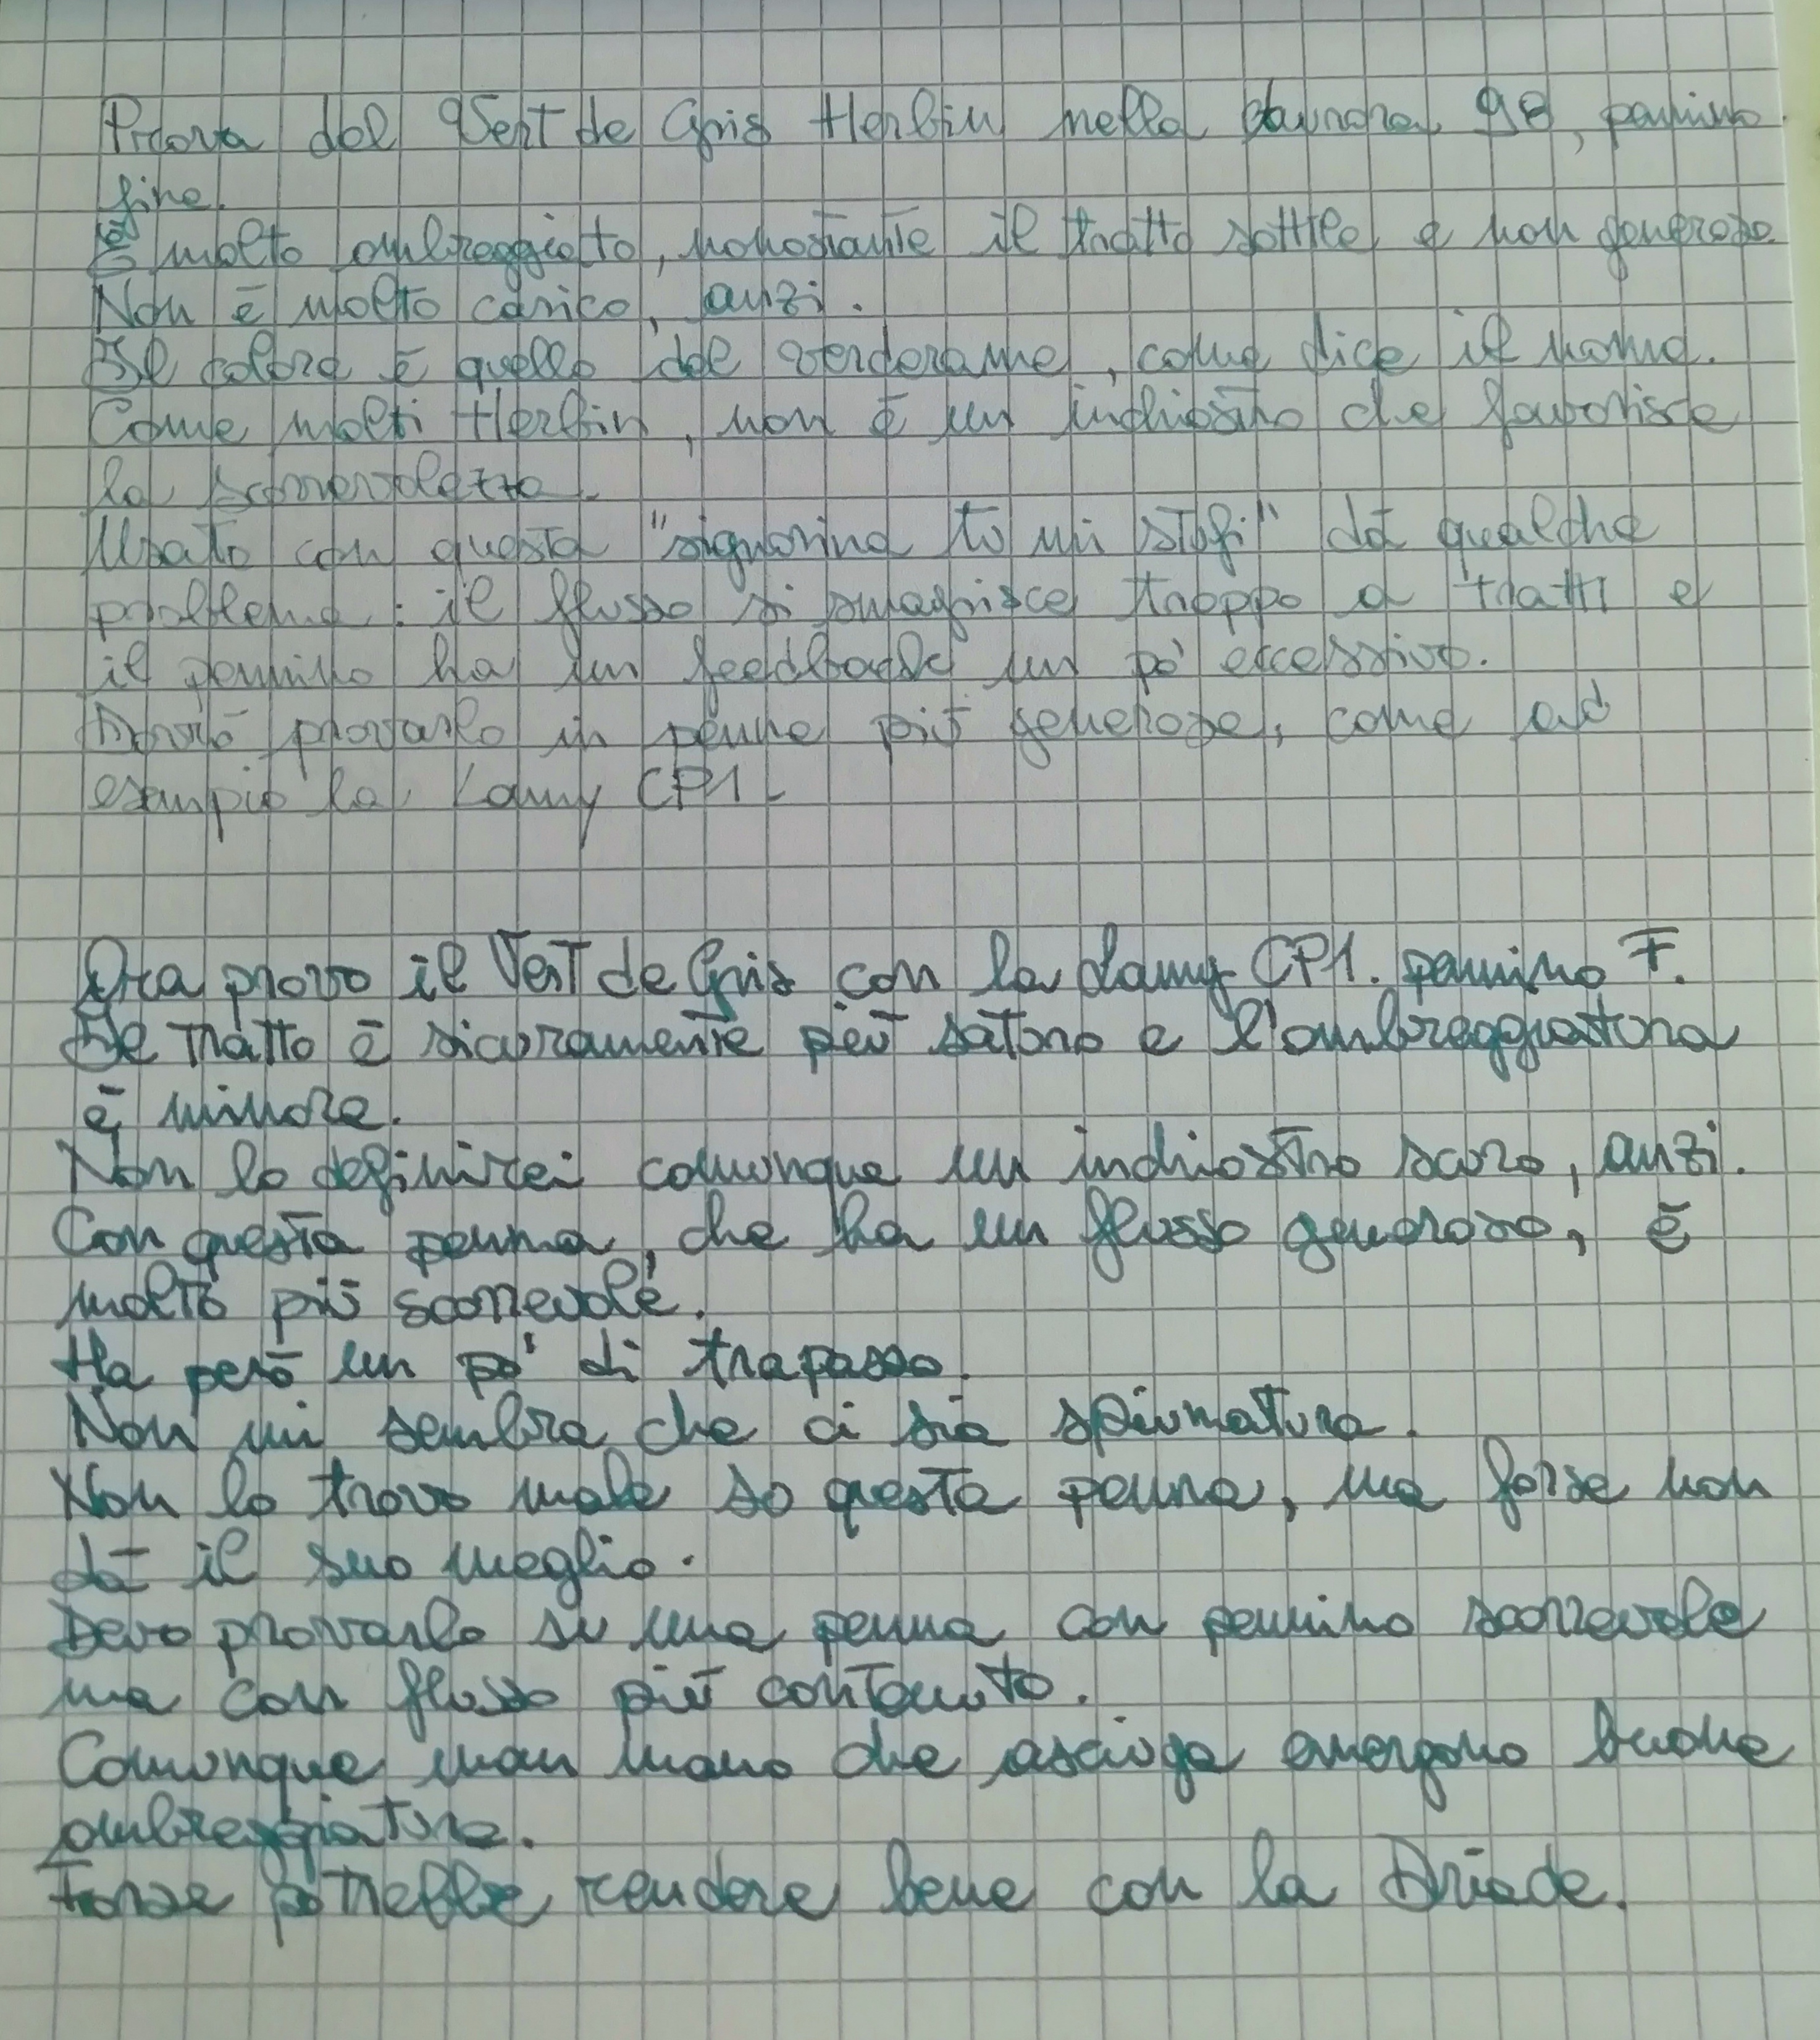 Prova del Vert de Gris Herbin nella Aurora 98, pennino
fine.
È molto ombreggiato, nonostante il tratto sottile e non generoso.
Non è molto carico, anzi.
Il colore è quello del verderame, come dice il nome.
Come molti Herbin, non è un inchiostro che favorisce
la scorrevolezza.
Usato con questa "signorina tu mi stufi" dà qualche
problema: il flusso si smagrisce troppo a tratti e
il pennino ha un feedback un po' eccessivo.
Dovrò provarlo in penne più generose, come ad
esempio la Lamy CP1.
Ora provo il Vert de Gris con la Lamy CP1. pennino F.
Il tratto è sicuramente più saturo e l'ombreggiatura
è minore.
Non lo definirei comunque un inchiostro scuro, anzi.
Con questa penna, che ha un flusso generoso, è
molto più scorrevole.
Ha però un po' di trapasso.
Non mi sembra che ci sia spiumatura.
Non lo trovo male so questa penna, ma forse non
dà il suo meglio.
Devo provarlo su una penna con pennino scorrevole
ma con flusso più contenuto.
Comunque man mano che asciuga emergono buone
ombreggiature.
Forse potrebbe rendere bene con la Driade.